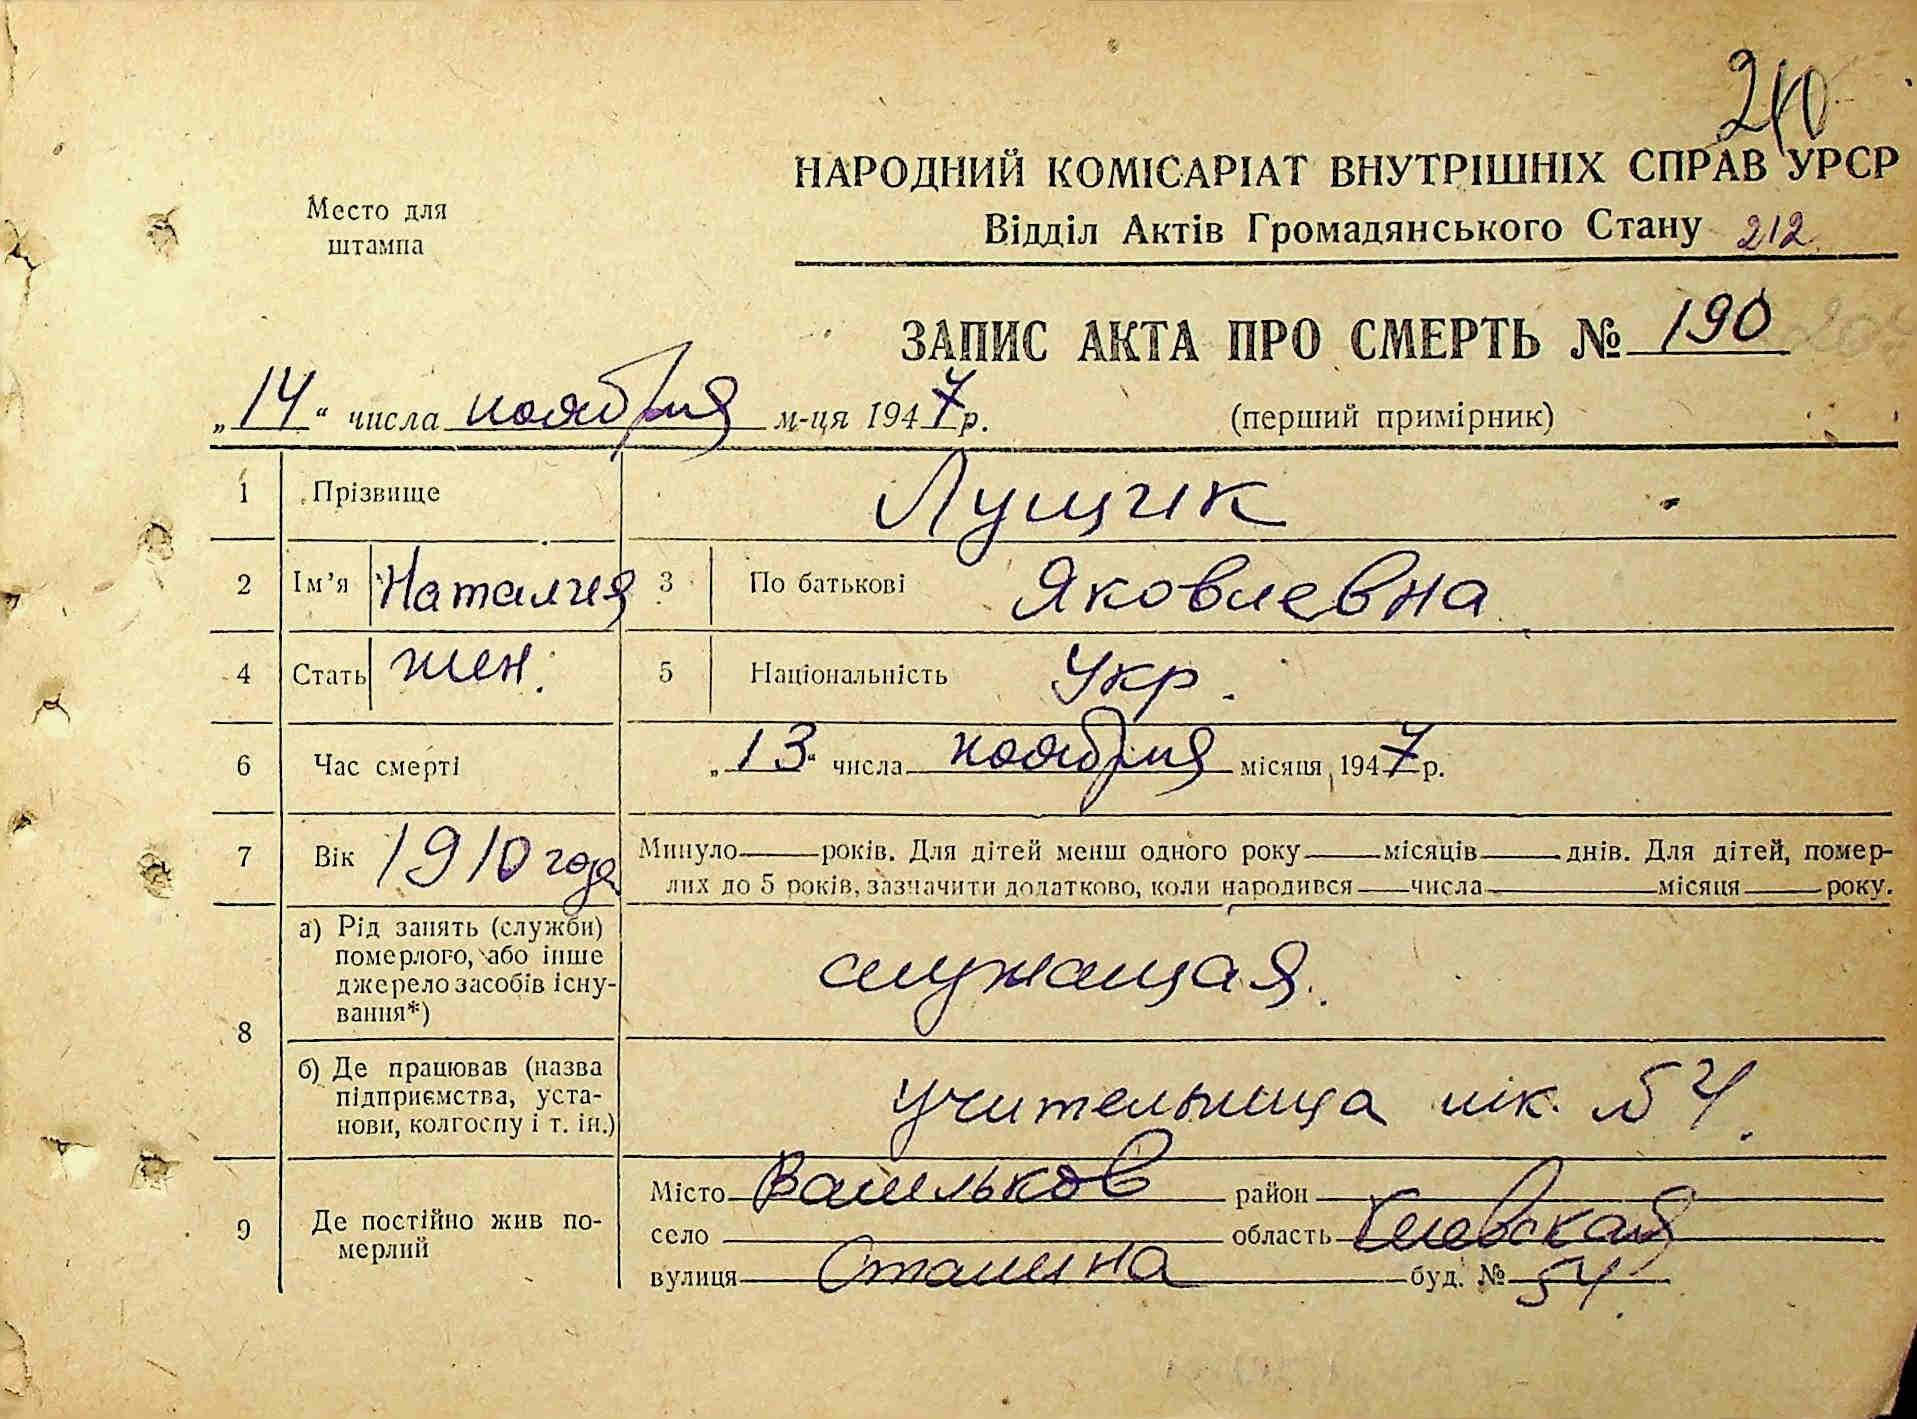 210
НАРОДНИЙ КОМІСАРІАТ ВНУТРІШНІХ СПРАВ УРСР
Место для
штампа
Відділ Актів Громадянського Стану 212
ЗАПИС АКТА ПРО СМЕРТЬ № 190
„14“ числа ноября м-ця 1947 р.
(перший примірник)
1 Прізвище Лущик
2 Ім’я Наталия 3 По батькові Яковлевна
4 Стать жен. 5 Національність Укр.
6 Час смерті „13“ числа ноября місяця 1947 р.
7 Вік 1910 года Минуло років. Для дітей менш одного року місяців днів. Для дітей, помер-
лих до 5 років, зазначити додатково, коли народився числа місяця року.
8
а) Рід занять (служби)
померлого, або інше
джерело засобів існу-
вання*)
служащая.
б) Де працював (назва
підприємства, уста-
нови, колгоспу і т. ін.)
учительница шк. № 4.
9 Де постійно жив по-
мерлий
Місто Васильков район
село область Киевская
вулиця Сталина буд. № 54.